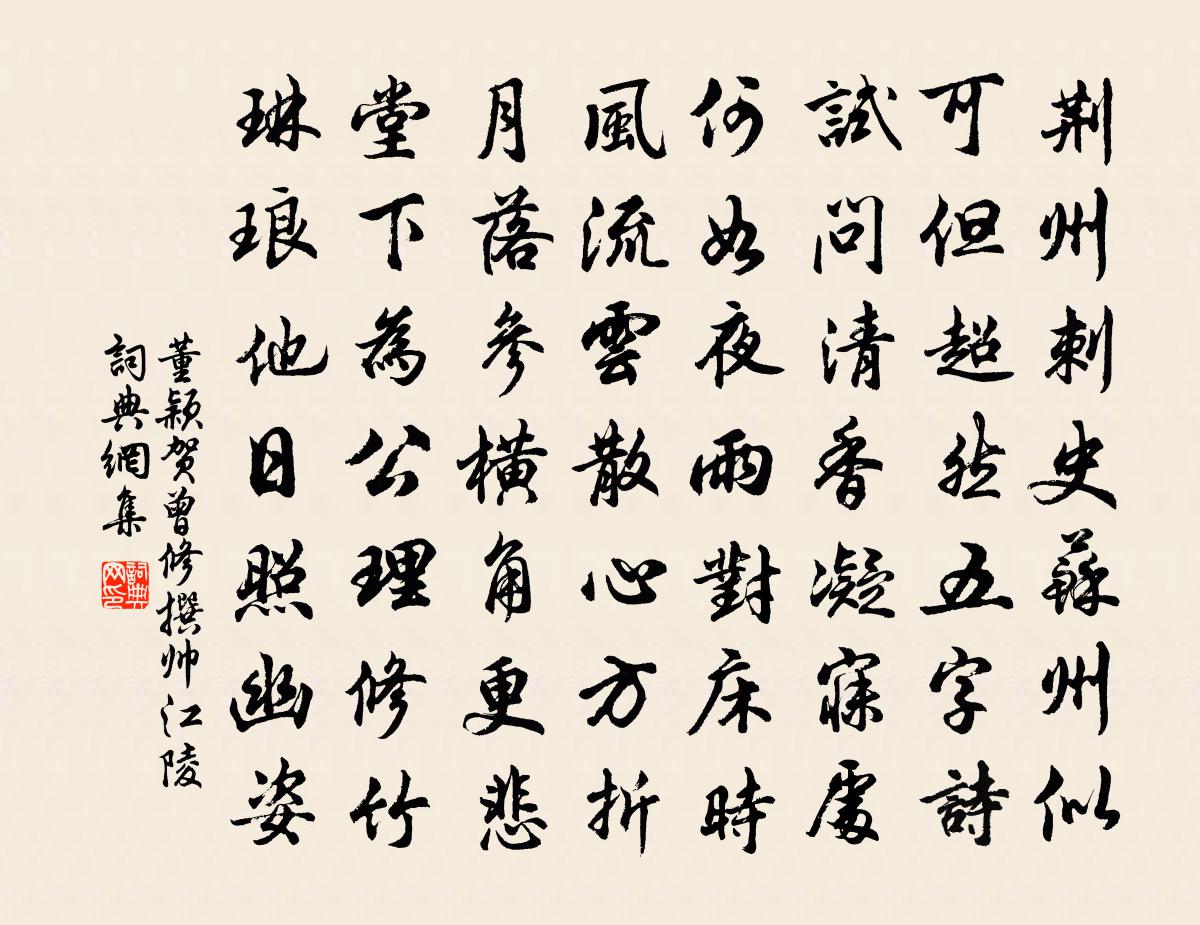 荆州刺史蘇州似
可但超然五字詩
試問清香凝寢處
何如夜雨對床時
風流雲散心方折
月落參橫角更悲
堂下為公理修竹
琳琅他日照幽姿
董颖贺曾修撰帅江陵
詞典網集
詞典网印